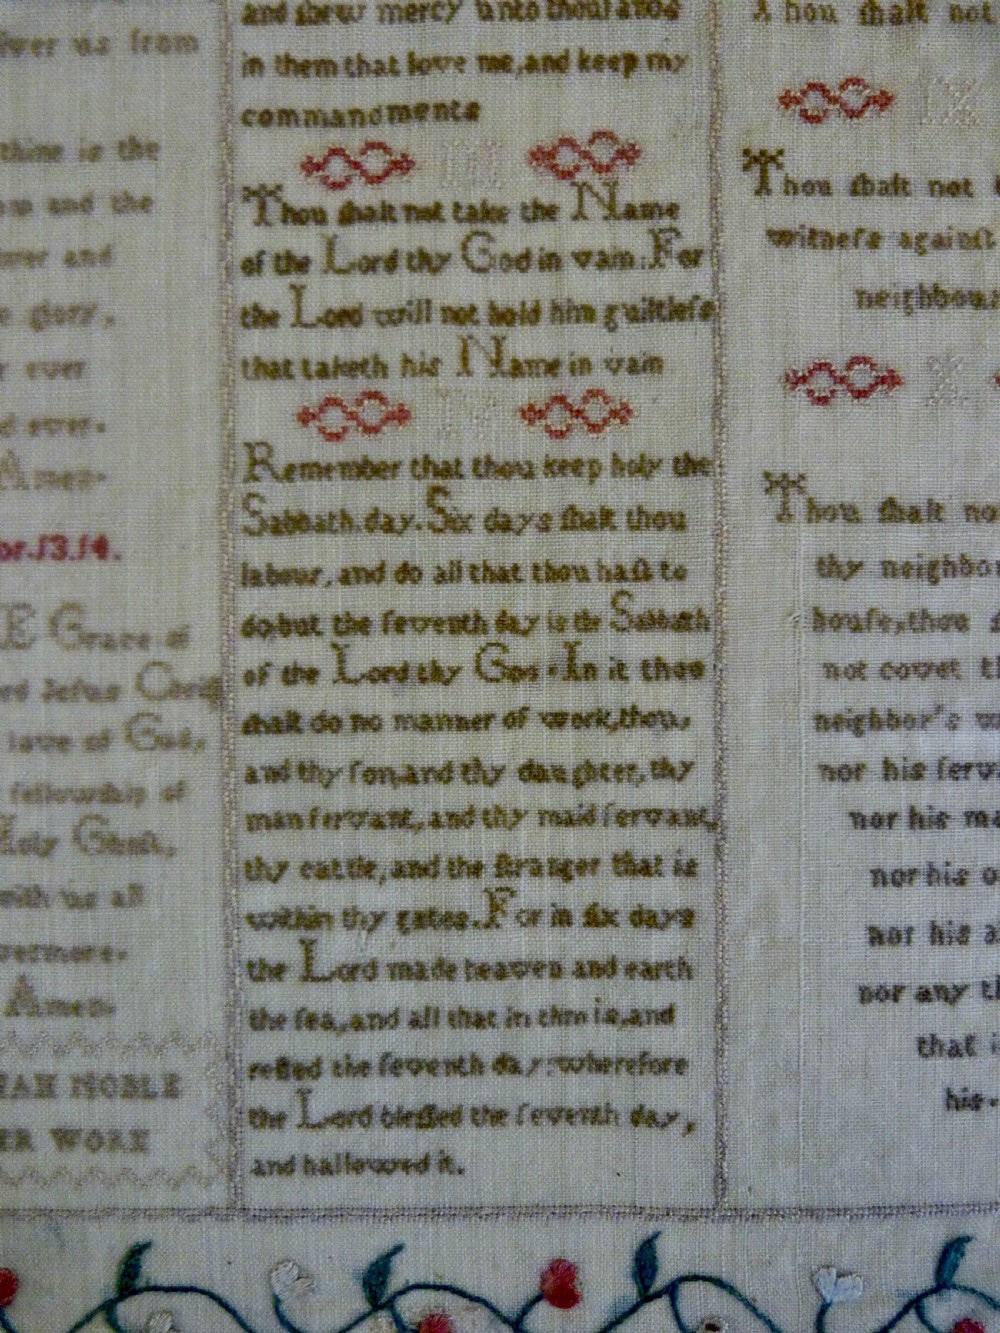 us from
thine is the
and the
and
glory,
ever
ever.
Amen.
13.14.
Grace of
Jesus
love of God,
fellowship of
Holy Ghost,
with us all
Amen.
NOBLE
WORK
and shew mercy unto thousands
in them that love me,and keep my
commandments
III
Thou ſhalt not take the Name
of the Lord thy God in vain:For
the Lord will not hold him guiltleſs
that taketh his Name in vain
IV
Remember that thou keep holy the
Sabbath.day.Six days ſhalt thou
labour,and do all that thou haſt to
do,but the ſeventh day is the Sabbath
of the Lord thy God.In it thou
ſhalt do no manner of work,thou,
and thy ſon,and thy daughter,thy
man ſervant,and thy maid ſervant,
thy cattle,and the ſtranger that is
within thy gates.For in ſix days
the Lord made heaven and earth
the ſea,and all that in thm is,and
reſted the ſeventh day:wherefore
the Lord bleſſed the ſeventh day,
and hallowed it.
Thou ſhalt not
IX
Thou ſhalt not
witneſs againſt
neighbour
X
Thou ſhalt no
thy neighbo
houſe,thou
not covet
neighbor's
nor his ſerv
nor his ma
nor his o
nor his a
nor any
that
his.